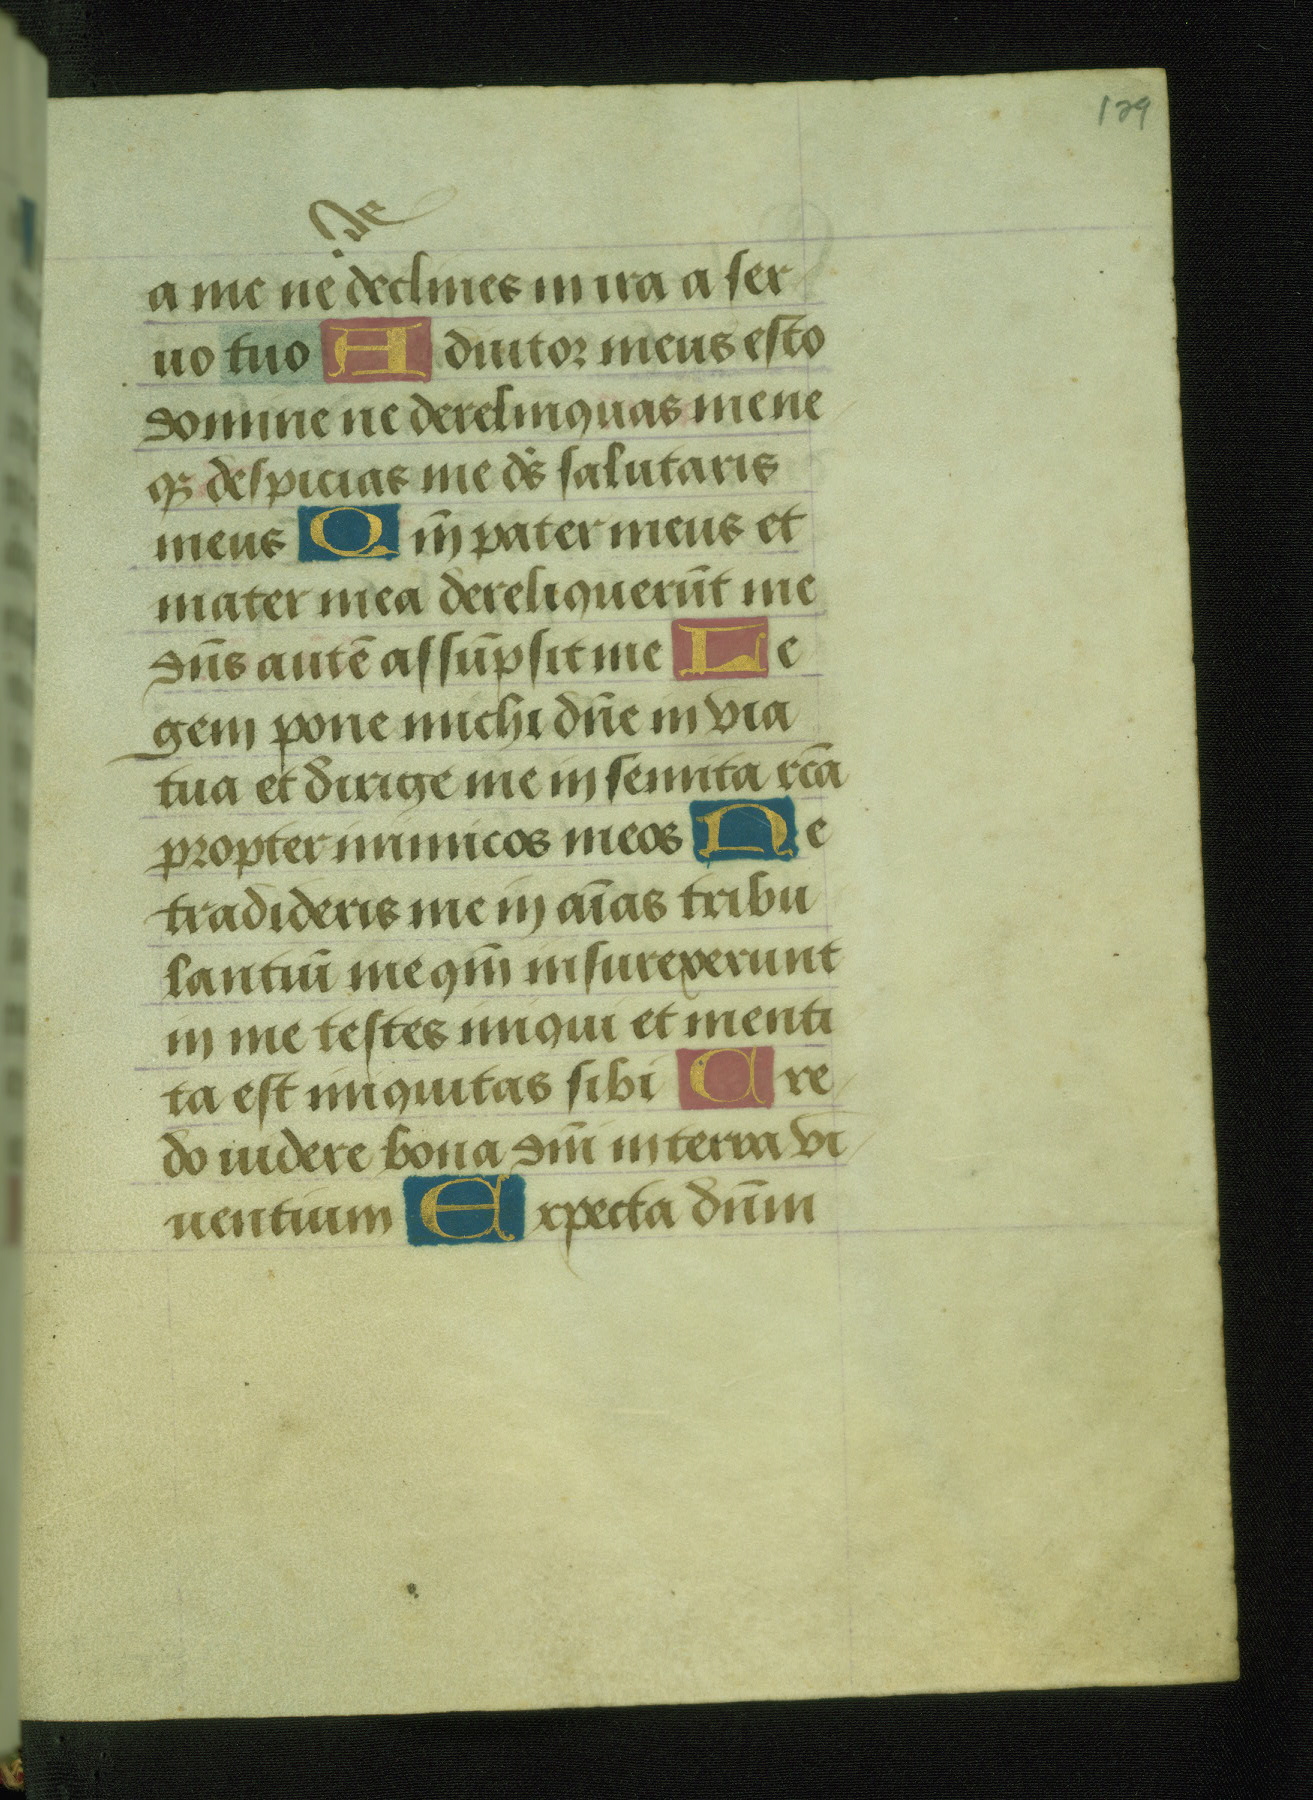 129
ne
a me ne declines in ira a ser
uo tuo Adiutor meus esto
domine ne derelinquas me ne
qꝫ despicias me ds̄ salutaris
meus Qm̄ pater meus et
mater mea dereliquerūt me
dn̄s autē assūpsit me Le
gem pone michi dn̄e in via
tua et dirige me in semita rc̄a
propter inimicos meos Ne
tradideris me in aīas tribu
lantiū me qm̄ insurexerunt
in me testes iniqui et menti
ta est iniquitas sibi Cre
do uidere bona dn̄i in terra vi
uentium Expecta dn̄m